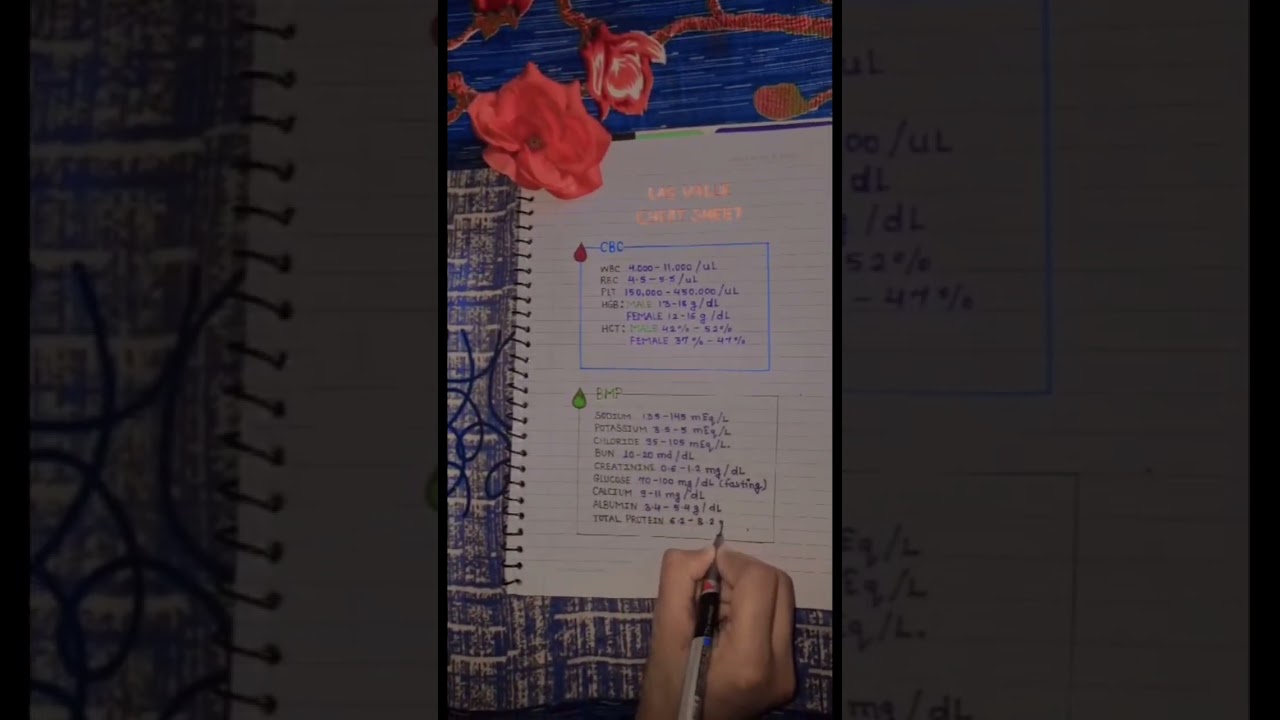 LAB VALUE
CHEAT SHEET
CBC
WBC 4.000-11.000/uL
RBC 4.5-5.5/uL
PLT 150,000-450.000/uL
HGB: MALE 13-18 g/dL
FEMALE 12-16 g/dL
HCT: MALE 42%-52%
FEMALE 37%-47%
BMP
SODIUM 135-145 mEq/L
POTASSIUM 3.5-5 mEq/L
CHLORIDE 95-105 mEq/L.
BUN 10-20 md/dL
CREATININE 0.6-1.2 mg/dL
GLUCOSE 70-100 mg/dL (fasting)
CALCIUM 9-11 mg/dL
ALBUMIN 3.4-5.4 g/dL
TOTAL PROTEIN 6.2-8.2 g